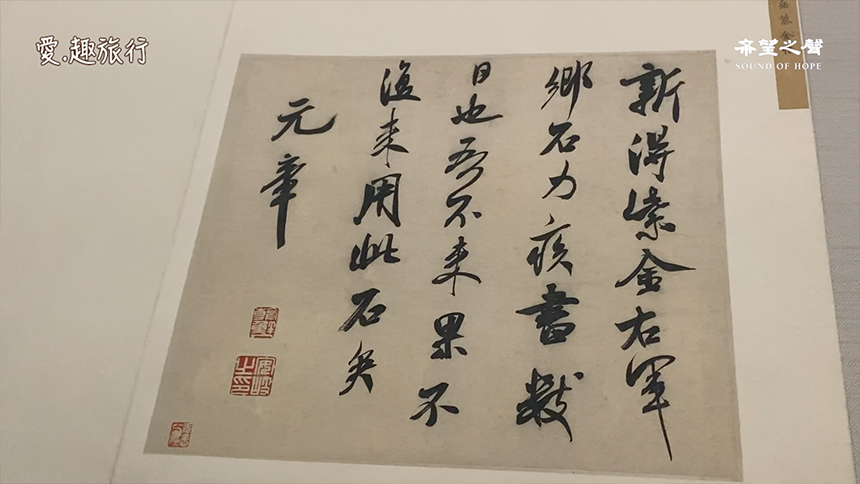 愛.趣旅行
希望之聲
SOUND OF HOPE
新得紫金右軍
鄉石力疾書數
日也吾不來果不
復來用此石矣
元章